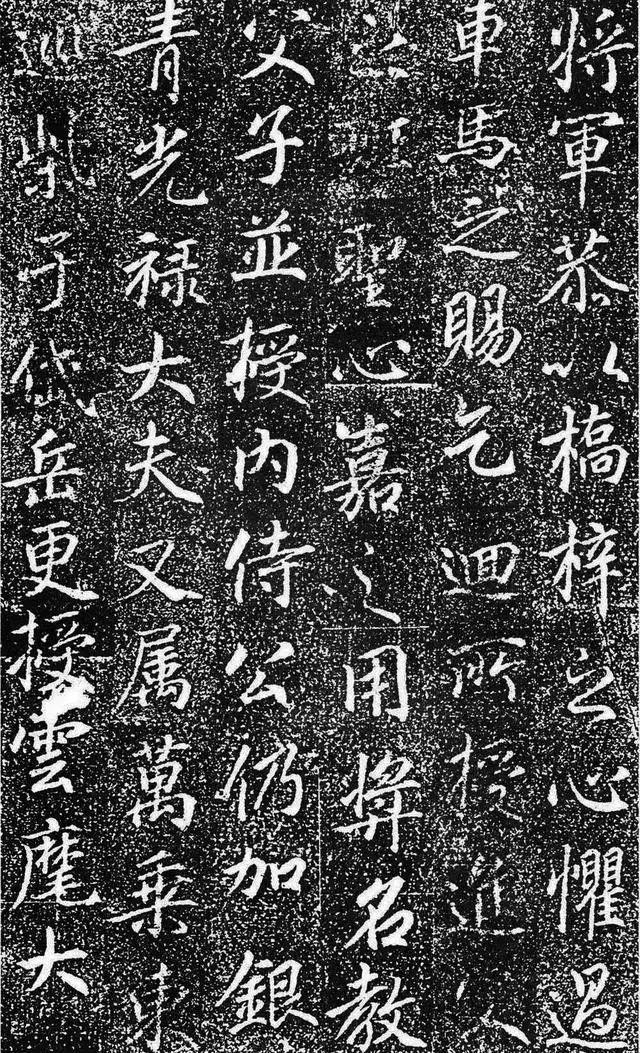 將軍恭以橋梓之心懼過
車馬之賜乞迴所授進父
聖心嘉之用獎名教
父子並授內侍公仍加銀
青光祿大夫又属萬乘東
巡柴于岱岳更授雲麾大